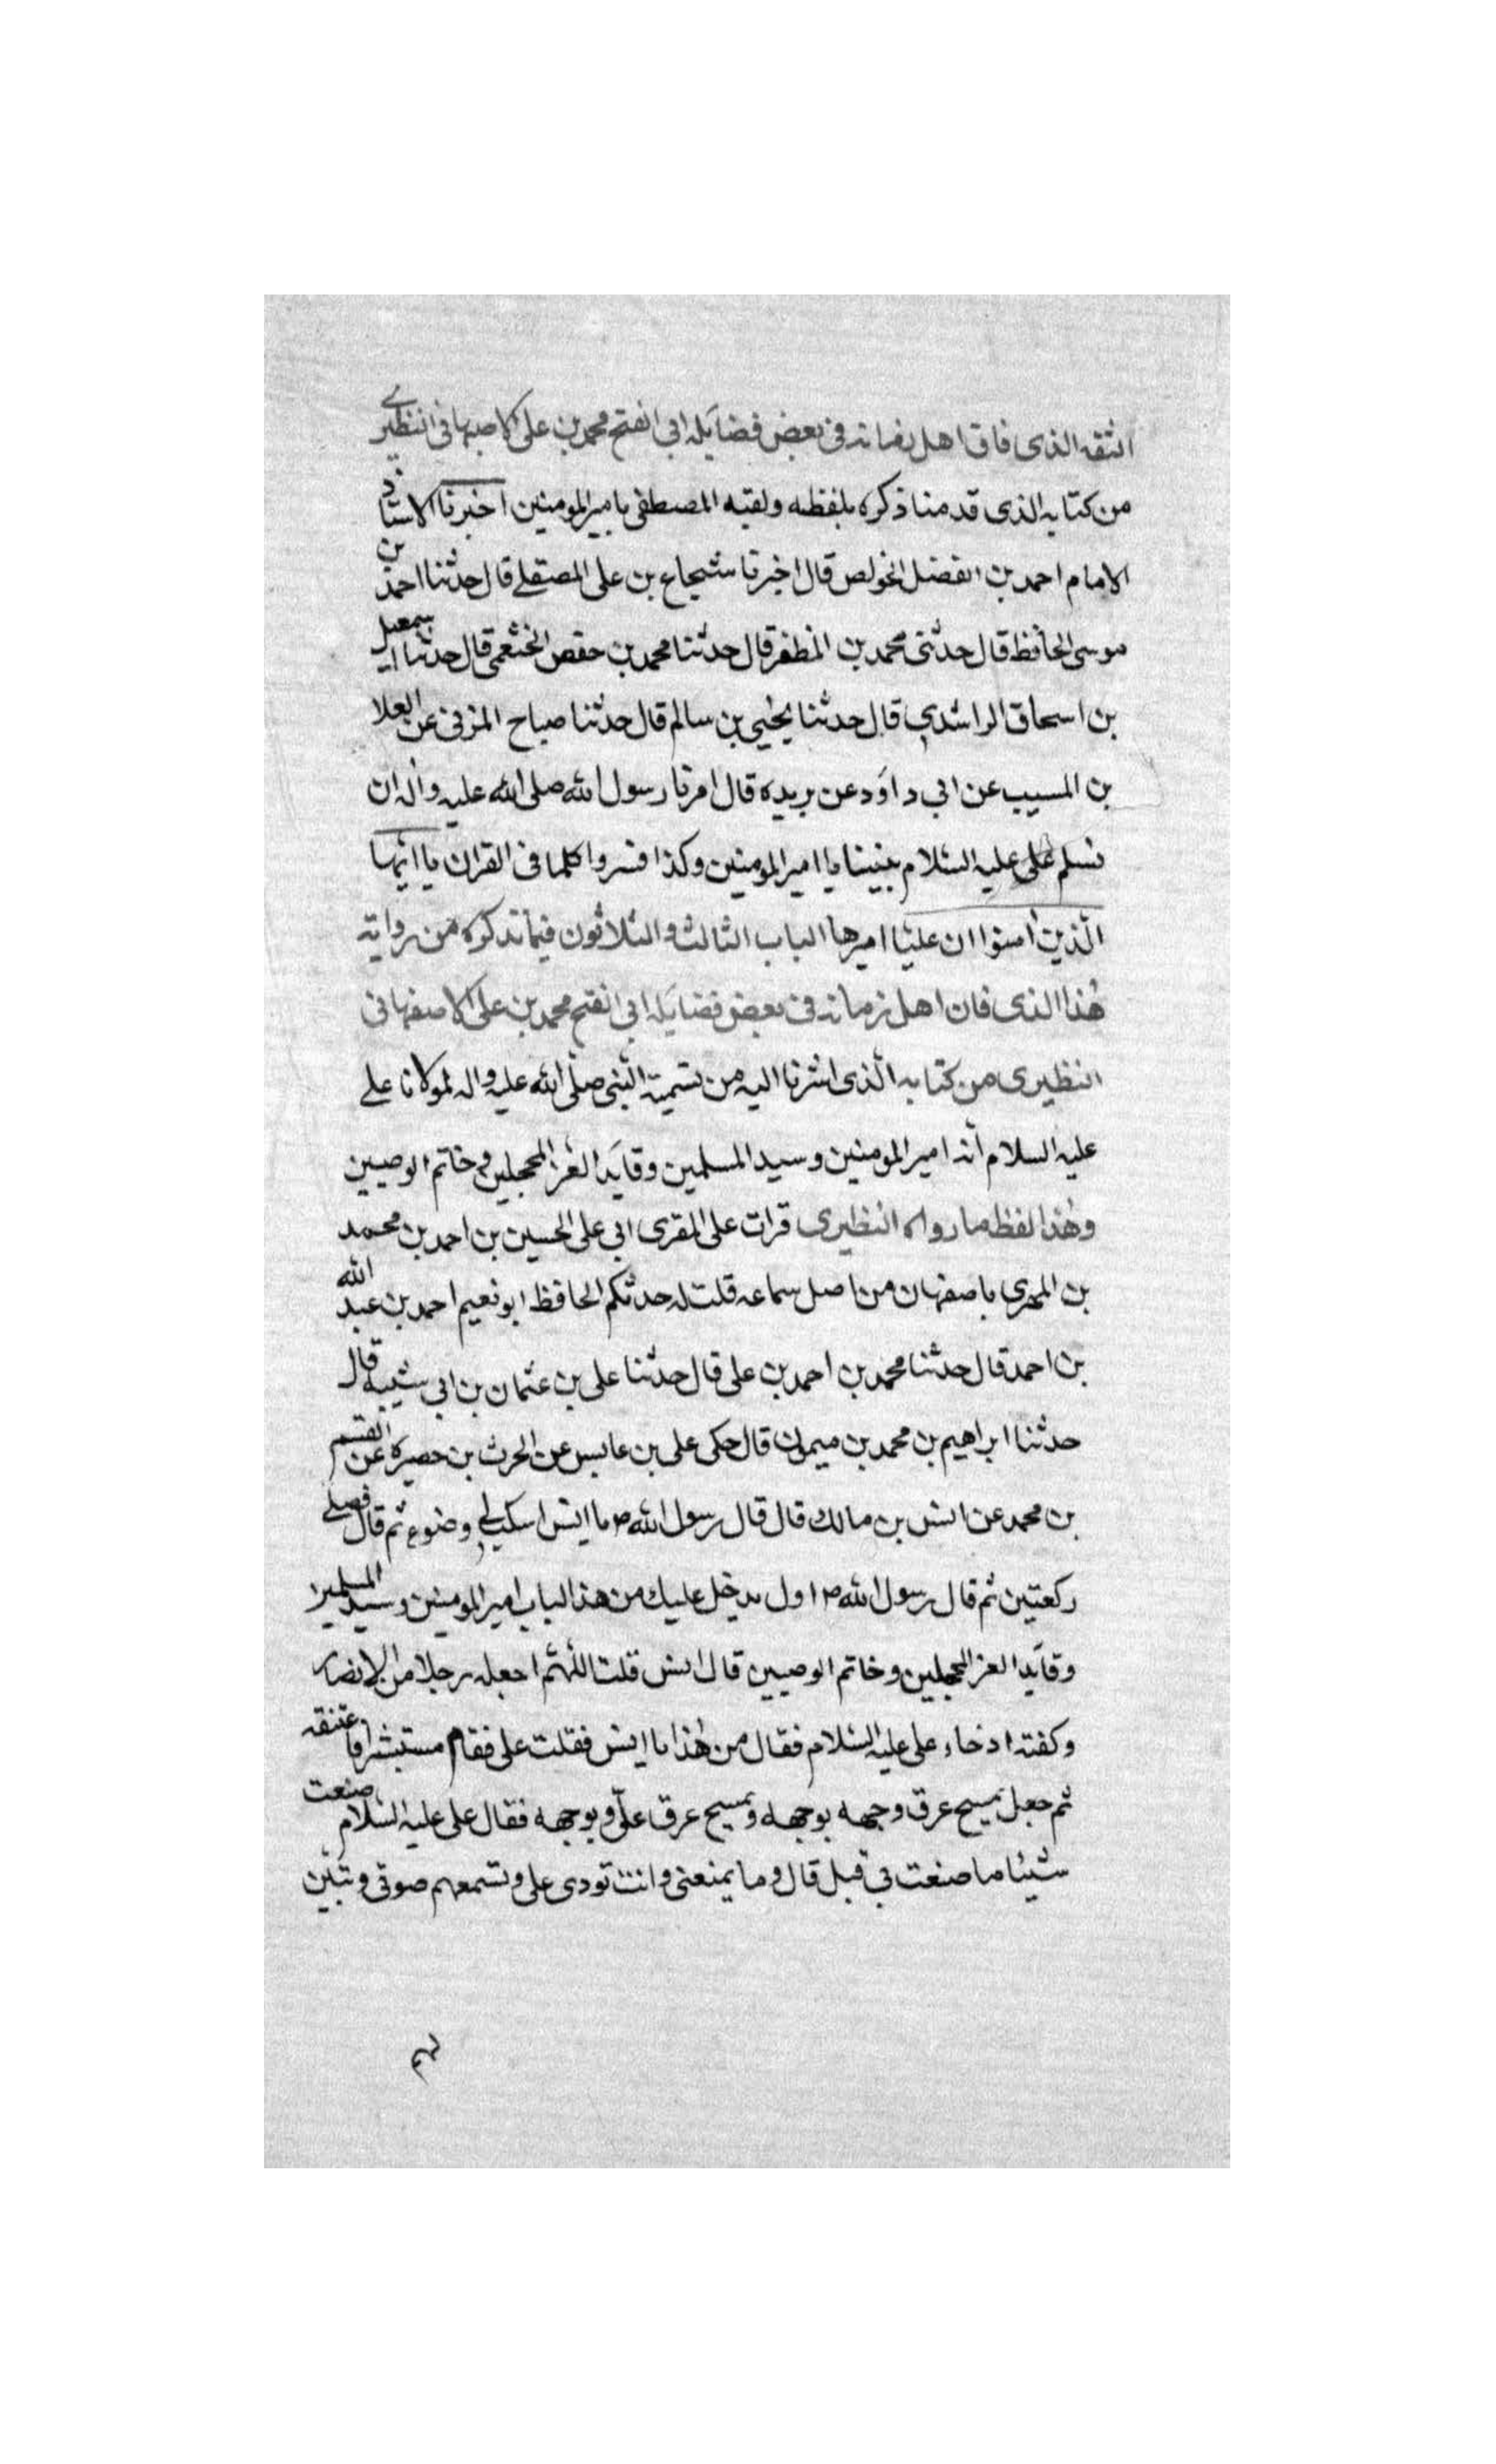 الثقه الذى فاق اهل زمانه فى بعض فضايله ابي الفتح محمد بن على الاصبهانى النظيرے
من كتابه الذى قدمنا ذكره بلفظه ولقبه المصطفى بامير المومنين اخبرنا الاستاد
الامام احمد بن الفضل الخواص قال اخبرنا شجاع بن على المصقلے قال حدثنا احمد بن
موسى الحافظ قال حدثنى محمد بن المظفر قال حدثنا محمد بن حفص الخثعمى قال حدثنا اسمعيل
بن اسحاق الراشدي قال حدثنا يحيى بن سالم قال حدثنا صباح المزنى عن العلا
بن المسيب عن ابي داود عن بريده قال امرنا رسول الله صلى الله عليه واله ان
نسلم على على عليه السلام بيننا يا امير المومنين وكذا فسروا كلما فى القران يا ايها
الّذين امنوا ان عليّا اميرها الباب الثالث والثلاثون فيما نذكره من رواية
هذا الذى فاق اهل زمانه فى بعض فضايله ابي الفتح محمد بن على الاصفهانى
النظيرى من كتابه الّذى اشرنا اليه من تسمية النّبى صلّى الله عليه واله لمولانا على
عليه السلام انه امير المومنين وسيد المسلمين وقايد الغر المحجلين وخاتم الوصيين
وهذا لفظ ما رواه النظيرى قرات على المقرى ابي على الحسين بن احمد بن محمد
بن المهرى باصفهان من اصل سماعه قلت له حدثكم الحافظ ابو نعيم احمد بن عبد الله
بن احمد قال حدثنا محمد بن احمد بن على قال حدثنا على بن عثمان بن ابي شيبه قال
حدثنا ابراهيم بن محمد بن ميمون قال حكى على بن عابس عن الحرث بن حصيره عن القسم
بن محمد عن انس بن مالك قال قال رسول الله ص يا انس اسكب لي وضوء ثم قال فصلے
ركعتين ثم قال رسول الله ص اول يدخل عليك من هذا الباب امير المومنين وسيد المسلمين
وقايد الغر المحجلين وخاتم الوصيين قال انس قلت اللّهم اجعله رجلا من الانصار
وكفته اذ جاء على عليه السلام فقال من هذا يا انس فقلت على فقام مستبشرا فاعتنقه
ثم جعل يمسح عرق وجهه بوجهه ويمسح عرق علىّ بوجهه فقال على عليه السلام صنعت
شيئا ما صنعت بي قبل قال وما يمنعنى وانت تودى على وتسمعهم صوتى وتبيّن
لهم